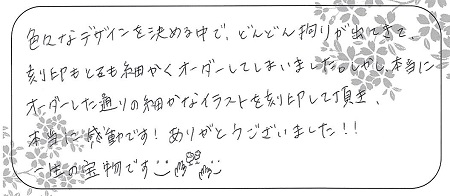 色々なデザインを決める中で、どんどん拘りが出てきて、
刻印もとても細かくオーダーしてしまいました。しかし、本当に
オーダーした通りの細かなイラストを刻印して頂き、
本当に感動です！ありがとうございました！！
一生の宝物です